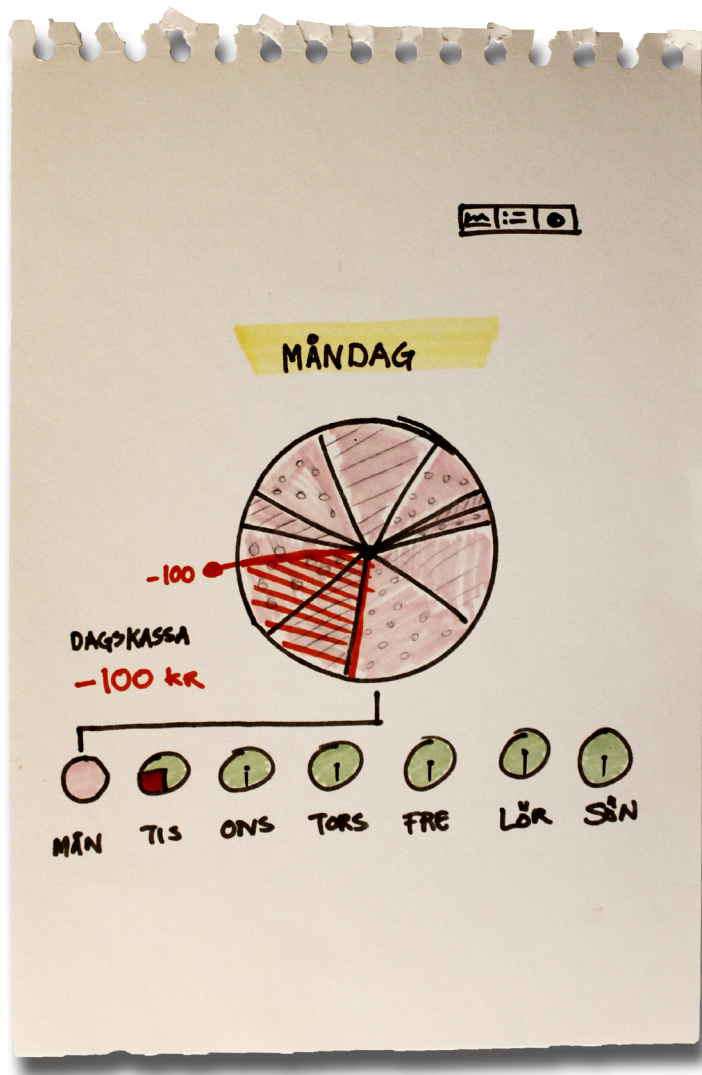 MÅNDAG
-100
DAGSKASSA
-100 KR
MÅN TIS ONS TORS FRE LÖR SÖN